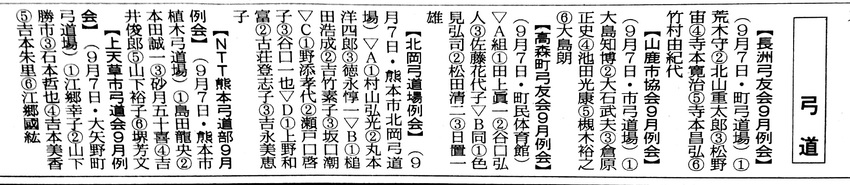 弓道
【長洲弓友会9月例会】
(9月7日・町弓道場)①
荒木守②北山重太郎③松野
宙④寺本寛治⑤寺本昌弘⑥
竹村由紀代
【山鹿市協会9月例会】
(9月7日・市弓道場)①
大島知博②大石武夫③倉原
正史④池田光康⑤槻木裕之
⑥大島朗
【高森町弓友会9月例会】
(9月7日・町民体育館)
▽A組①田上眞一②谷口弘
人③佐藤花代子▽B同①色
見弘司②松田清二③日置一
雄
【北岡弓道場例会】(9
月7日・熊本市北岡弓道
場)▽A①村山弘光②丸本
洋四郎③徳永惇一▽B①槌
田浩成②吉竹素子③坂口潮
▽C①野添孝代②瀬戸口啓
子③谷口一也▽D①上野和
富②古荘登志子③吉永美恵
子
【NTT熊本弓道部9月
例会】(9月7日・熊本市
植木弓道場)①島田龍央②
本田誠一③砂月五十喜④吉
井俊郎⑤山下裕子⑥堺芳文
【上天草市弓道会9月例
会】(9月7日・大矢野町
弓道場)①江郷幸子②山下
勝市③石本哲也④吉本美香
⑤吉本朱里⑥江郷國紘